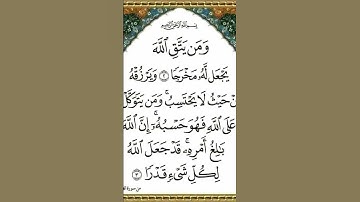 بِسْمِ اللَّهِ الرَّحْمَٰنِ الرَّحِيمِ
وَمَن يَتَّقِ ٱللَّهَ
يَجْعَل لَّهُۥ مَخْرَجًا ٢ وَيَرْزُقْهُ
نْ حَيْثُ لَا يَحْتَسِبُ ۚ وَمَن يَتَوَكَّلْ
عَلَى ٱللَّهِ فَهُوَ حَسْبُهُۥٓ ۚ إِنَّ ٱللَّهَ
بَٰلِغُ أَمْرِهِۦ ۚ قَدْ جَعَلَ ٱللَّهُ
لِكُلِّ شَىْءٍ قَدْرًا ٣
من سورة